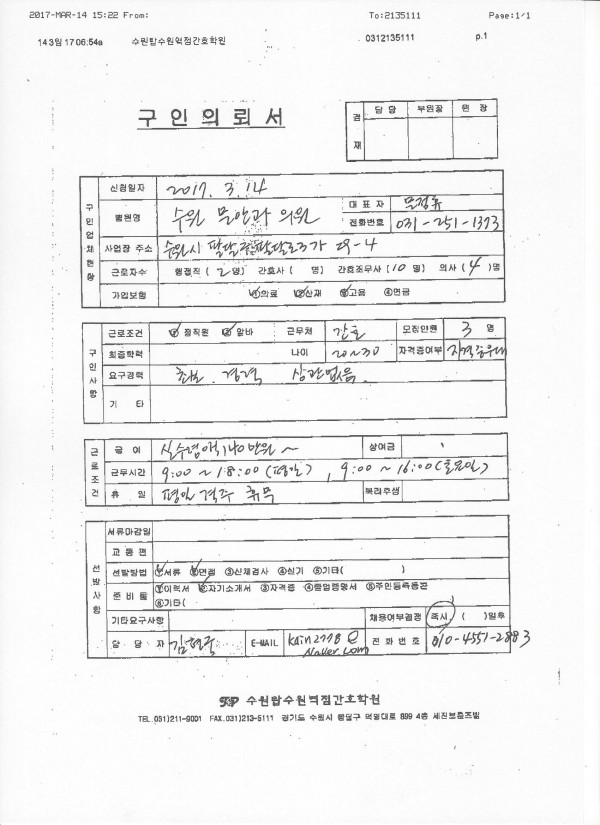 2017-MAR-14 15:22 From: To:2135111 Page:1/1
14 3월 17 06:54a 수원탑수원역점간호학원 0312135111 p.1
구 인 의 뢰 서
결 재 담 당 부원장 원 장
구인업체현황
신청일자 2017. 3. 14
병원명 수원 문안과 의원 대 표 자
전화번호 031-251-1373
사업장 주소 수원시 팔달구 팔달로3가 28-4
근로자수 행정직 ( 2 명) 간호사 ( 명) 간호조무사 (10 명) 의사 ( 4 )명
가입보험 ①의료 ②산재 ③고용 ④연금
구인사항
근로조건 ① 정직원 ② 알바 근무처 간호 모집인원 3 명
최종학력 나이 20~30 자격증여부 자격증우대
요구경력 초보. 경력 상관없음.
기 타
근로조건
급 여 실수령액 140만원 ~ 상여금
근무시간 9:00 ~ 18:00 (평일), 9:00 ~ 16:00 (토요일)
휴 일 평일 격주 휴무 복리후생
선발사항
서류마감일
교 통 편
선발방법 ①서류 ②면접 ③신체검사 ④실기 ⑤기타( )
준 비 물 ①이력서 ②자기소개서 ③자격증 ④졸업증명서 ⑤주민등록등본
⑥기타( )
기타요구사항 채용여부결정 즉시 ( )일후
담 당 자 E-MAIL kain2778@naver.com 전 화 번 호 010-4551-2883
수원탑수원역점간호학원
TEL.031)211-9001 FAX.031)213-5111 경기도 수원시 팔달구 덕영대로 899 4층 세진브론즈빌